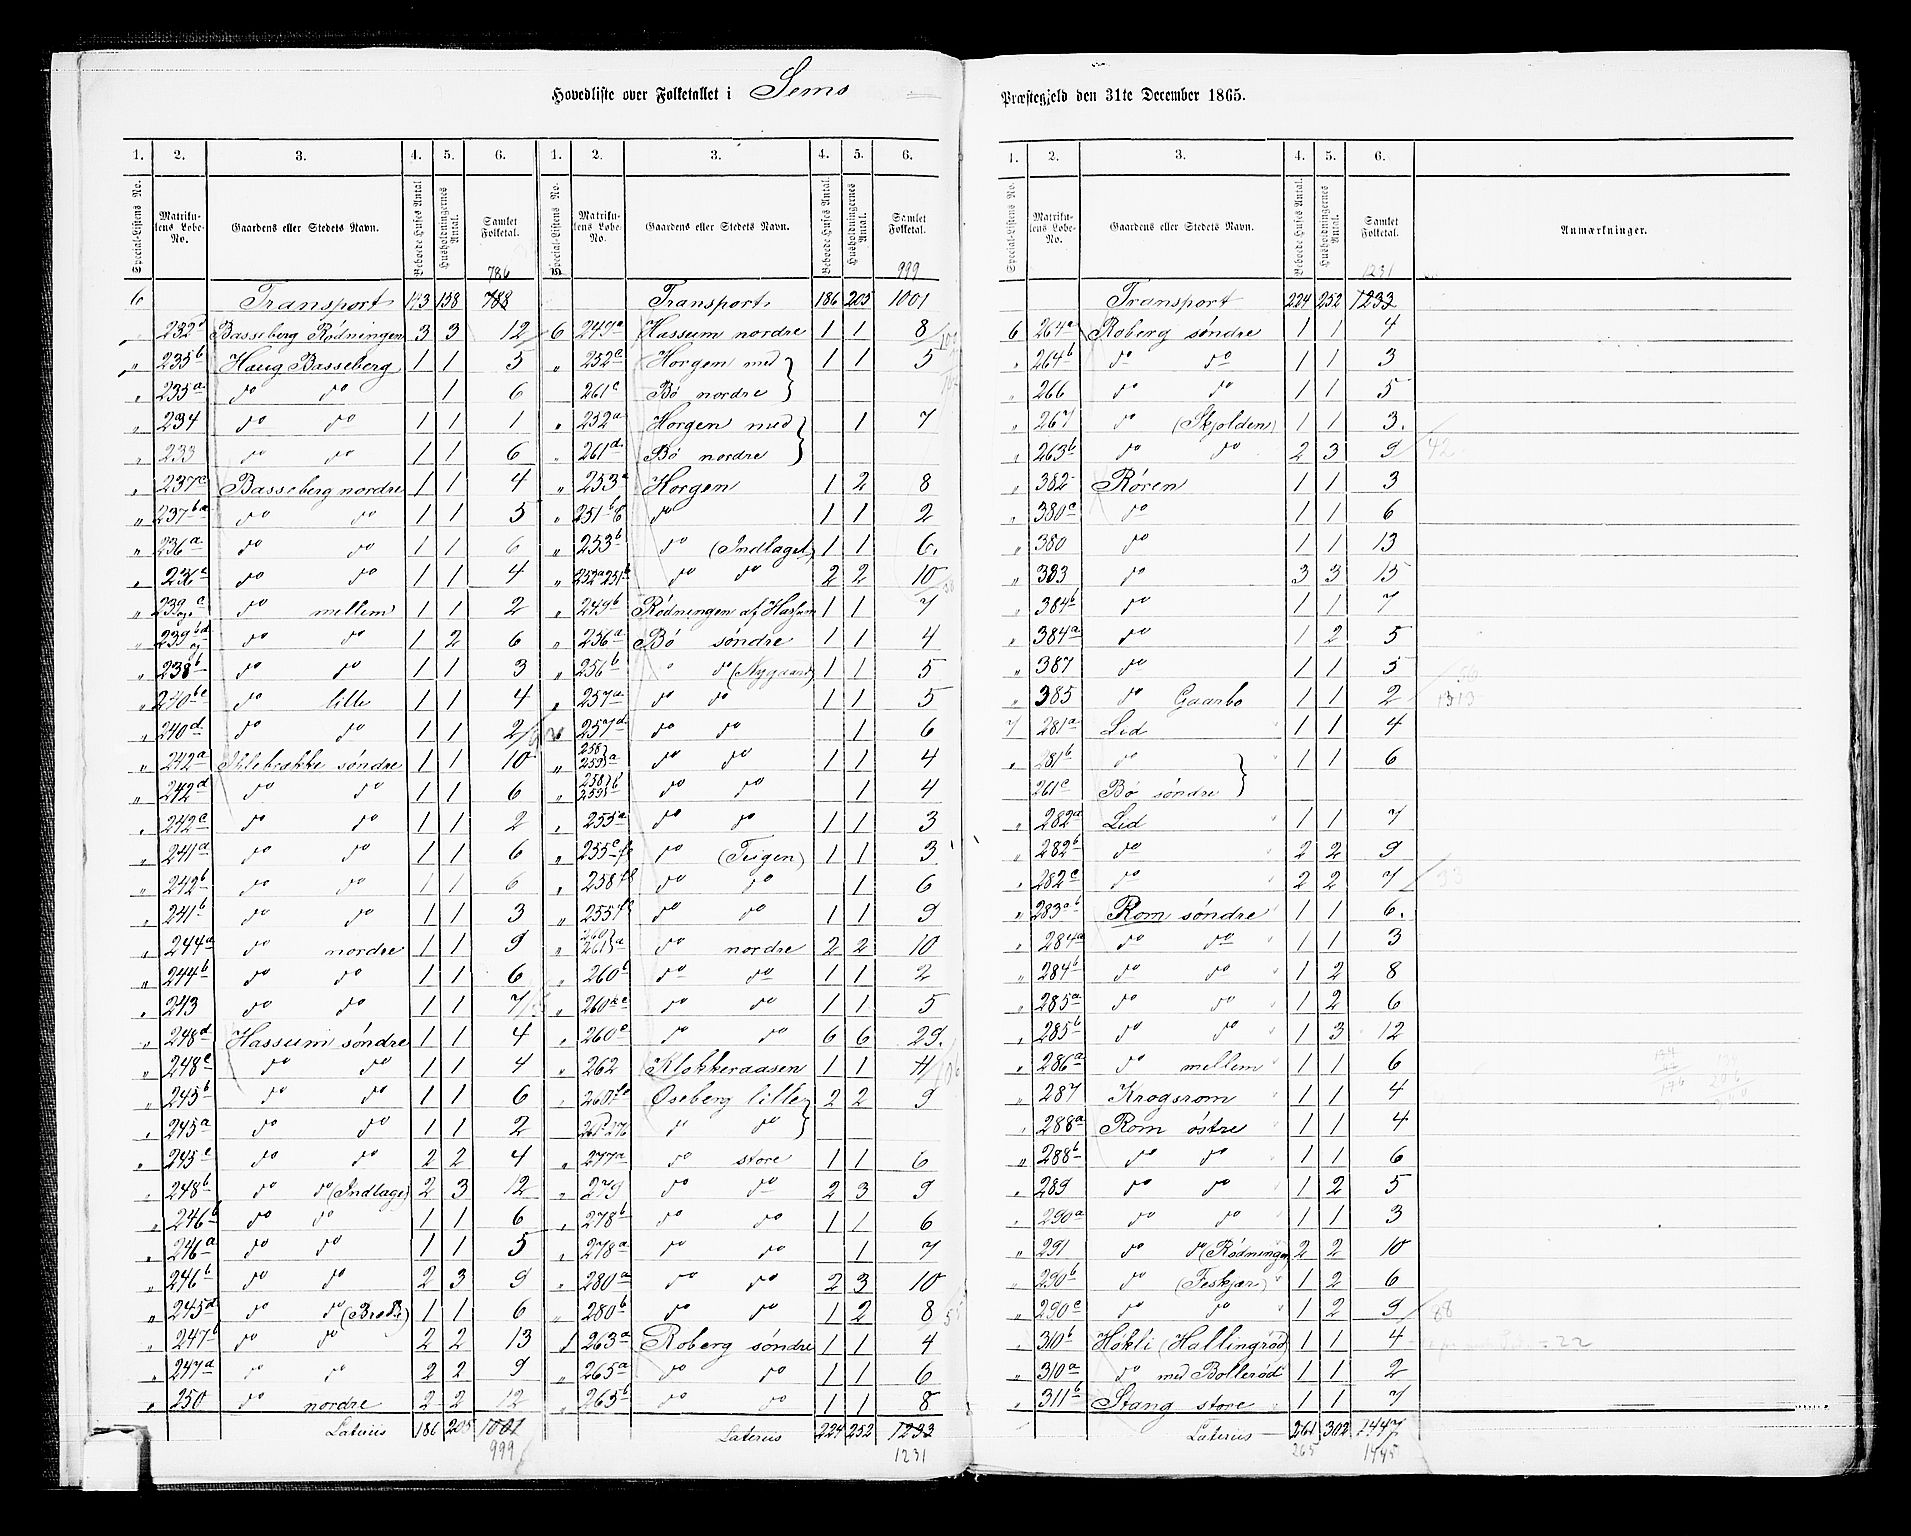 Hovedliste over Folketallet i Sems Præstegjeld den 31te December 1865.
1. 2. 3. 4. 5. 6. 1. 2. 3. 4. 5. 6.
Special-Listens No. Matrikulens Løbe-No. Gaardens eller Stedets Navn. Beboede Huses Antal. Husholdningernes Antal. Samlet Folketal. Special-Listens No. Matrikulens Løbe-No. Gaardens eller Stedets Navn. Beboede Huses Antal. Husholdningernes Antal. Samlet Folketal.
786
6 Transport 143 158 788
232d Basseberg Rødningen 3 3 12
" 235b Haug Basseberg 1 1 5
" 235a do do 1 6
" 234 do do 1 1 1
" 233 do do 1 1 6
" 237c Basseberg nordre 1 1 4
" 237ba do do 1 1 5
" 236a do do 1 1 6
" 236c do do 1 1 4
" 239c do mellem 1 1 2
" 239bd og do do 1 2 6
" 238b do do 1 1 3
" 240bc do lille 1 1 4
" 240d do do 1 1 2
" 242a Sklebække søndre 1 1 10
" 242d do do 1 1 6
" 242c do do 1 1 2
" 241a do do 1 1 6
" 242b do do 1 1 6
" 241b do do 1 1 3
" 244a do nordre 1 1 9
" 244b do do 1 1 6
" 243 do do 1 1 7
" 248d Hassum søndre 1 1 4
" 248c do do 1 1 4
" 245b do do 1 1 6
" 245a do do 1 1 2
" 245c do do 2 2 4
" 248b do do (Indlaget) 2 3 12
" 246b do do 1 1 6
" 246a do do 1 1 5
" 246b do do 2 3 9
" 245d do do 1 1 6
" 247b do do 2 2 13
" 247a do do 2 2 9
" 250 do nordre 2 2 12
Lateris 186 205 1001
999
999
Transport 186 205 1001
6 249a Hassum nordre 1 1 8
" 252c Horgen med 1 1 5
261c Bø nordre
" 252a Horgen med 1 7
261d Bø nordre
" 253a Horgen 1 2 8
" 251b do 1 1 2
" 253b do (Indlaget) 1 1 6.
" 252a 251b do do 2 2 10
" 249b Rødningen af Hassum 1 1 7
" 256a Bø søndre 1 1 4
" 256b " do (Nygaard) 1 1 5
" 257a do do 1 1 5
" 257d do do 1 6
" 258 259 a do do 1 1 4
258 259 b do do 1 4
" 255a do do 1 1 3
" 255c do (Teigen) 1 1 3
" 258 do do 1 6
" 255 do do 1 1 9
" 260 261 a do nordre 2 2 10
" 260b do do 1 1 2
" 260ac do do 1 1 5
" 260e do do 6 6 29.
" 262 Klokkeraasen 1 1 4
" 260 Oseberg lille 2 2 9
do do
" 277a do store 1 1 6
" 279 do do 2 3 9
" 278b do do 1 1 6
" 278a do do 1 7
" 280a do do 2 3 10
" 280b do do 1 2 8
263a Roberg søndre 1 1 4
" 265a do do 1 1 6
" 265b do do 1 1 8
Lateris 224 252 1233
1231
1. 2. 3. 4. 5. 6.
Special-Listens No. Matrikulens Løbe-No. Gaardens eller Stedets Navn. Beboede Huses Antal. Husholdningernes Antal. Samlet Folketal. Anmærkninger.
1231
Transport 224 252 1233
6 264a Roberg søndre 1 1 4
" 264b do do 1 1 3
" 266 do do 1 1 5
" 267 do (Skjolden) 1 1 3.
" 263b do do 2 3 9 42
" 382 Røren 1 1 3
" 380c do 1 1 6
" 380 do 1 1 13
" 383 do 3 3 15
" 384b do 1 1 7
" 384a do 1 2 5
" 387 do 1 1 5
" 385 do Gaarbo 1 1 2
7 281a Lid 1 1 4
" 281b do 1 1 6
261c Bø søndre
" 282a Lid 1 1 7
" 282b do 2 2 9
" 282c do 2 2 7 33
" 283ab Rom søndre 1 1 6.
" 284a do do 1 1 3
" 284b do do 1 2 8
" 285a do do 1 2 6
" 285b do do 1 3 12
" 286a do mellem 1 1 6
" 287 Krogsrom 1 1 4
" 288a Rom østre 1 1 4
" 288b do do 1 1 6
" 289 do do 1 2 5
" 290a do do 1 1 3
" 291 do do (Rødningen) 2 2 10
" 290b do (Feskjær) 1 2 6
" 290c do do 1 2 9 88
" 310b Hokli (Hallingrød) 1 1 4
" 310a do med Bollerød 1 1 2
" 311b Stang store 1 1 7
Lateris 261 302 1447
265 1445